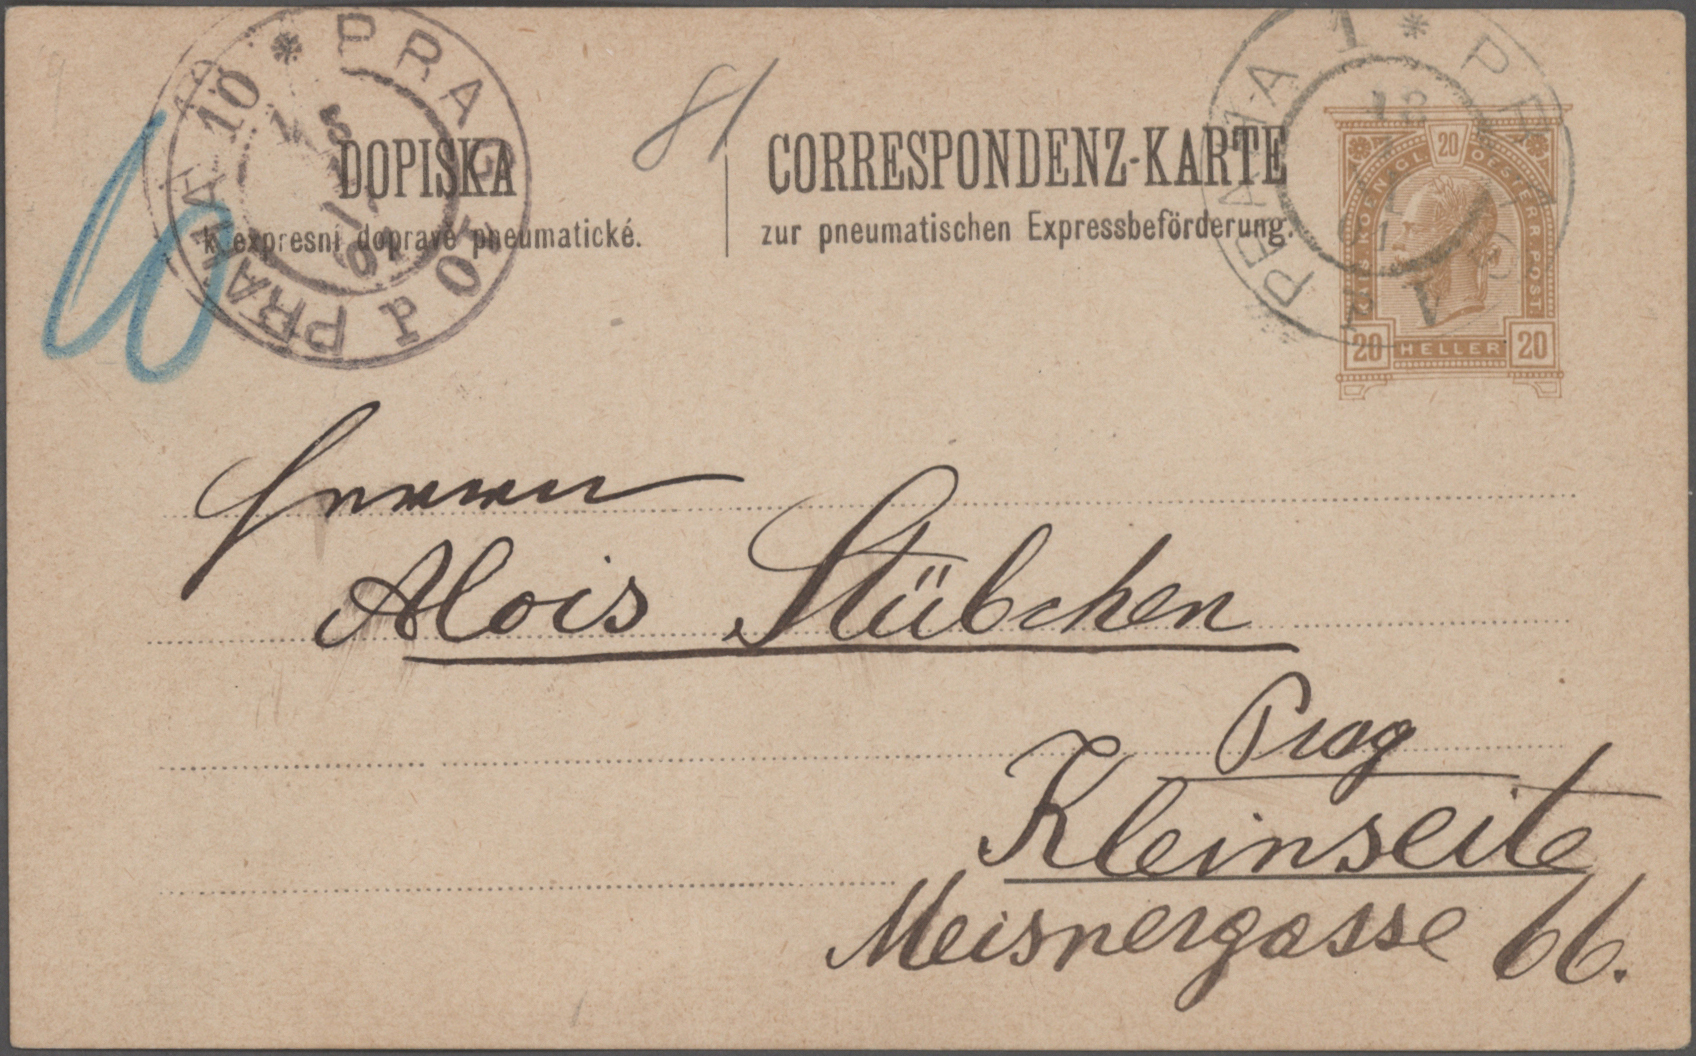 PRAG 10
PRAHA 10
81
PRAG 1
PRAHA 1
DOPISKA
k expresní dopravě pneumatické.
CORRESPONDENZ-KARTE
zur pneumatischen Expressbeförderung.
20
KAIS. KOENIGL. OESTERR. POST.
20 HELLER 20
Herrn
Alois Stübchen
Prag
Kleinseite
Meisnergasse 66.